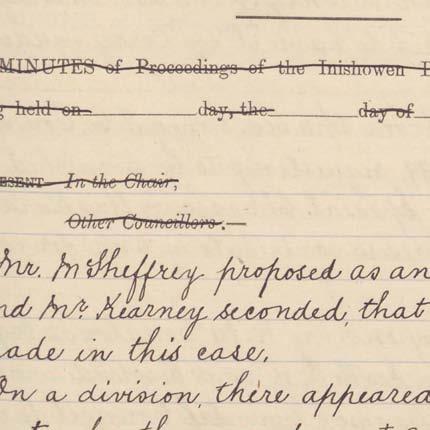 MINUTES of Proceedings of the Inishowen
held on day, the day of
In the Chair,
Other Councillors.—
Mr. McSheffrey proposed as an
Mr. Kearney seconded, that
in this case.
On a division, there appeared